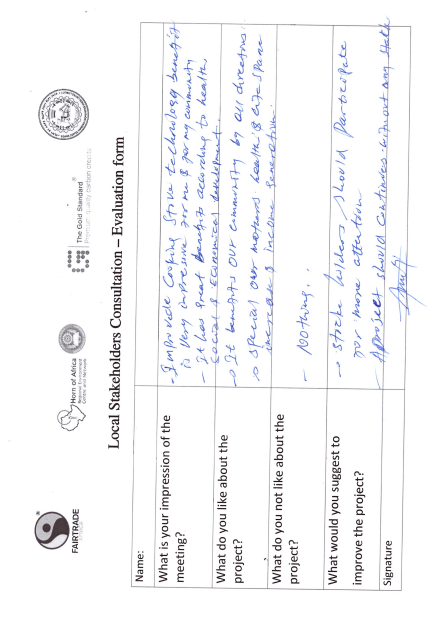 FAIRTRADE
Horn of Africa
Regional Environment
Centre and Network
The Gold Standard®
Premium quality carbon credits
Local Stakeholders Consultation – Evaluation form
Name:
What is your impression of the
meeting?
- Improvde Cooking Stove technology benefit
is very impresive for me & for my community
- It has great benefits according to health,
social & economical development.
What do you like about the
project?
→ It benefits our community by all directions.
→ special our mothers health & life span
increase & income generation.
What do you not like about the
project?
- Nothing..
What would you suggest to
improve the project?
→ stake holders should participate
for more attention
- project should continues without any
Signature